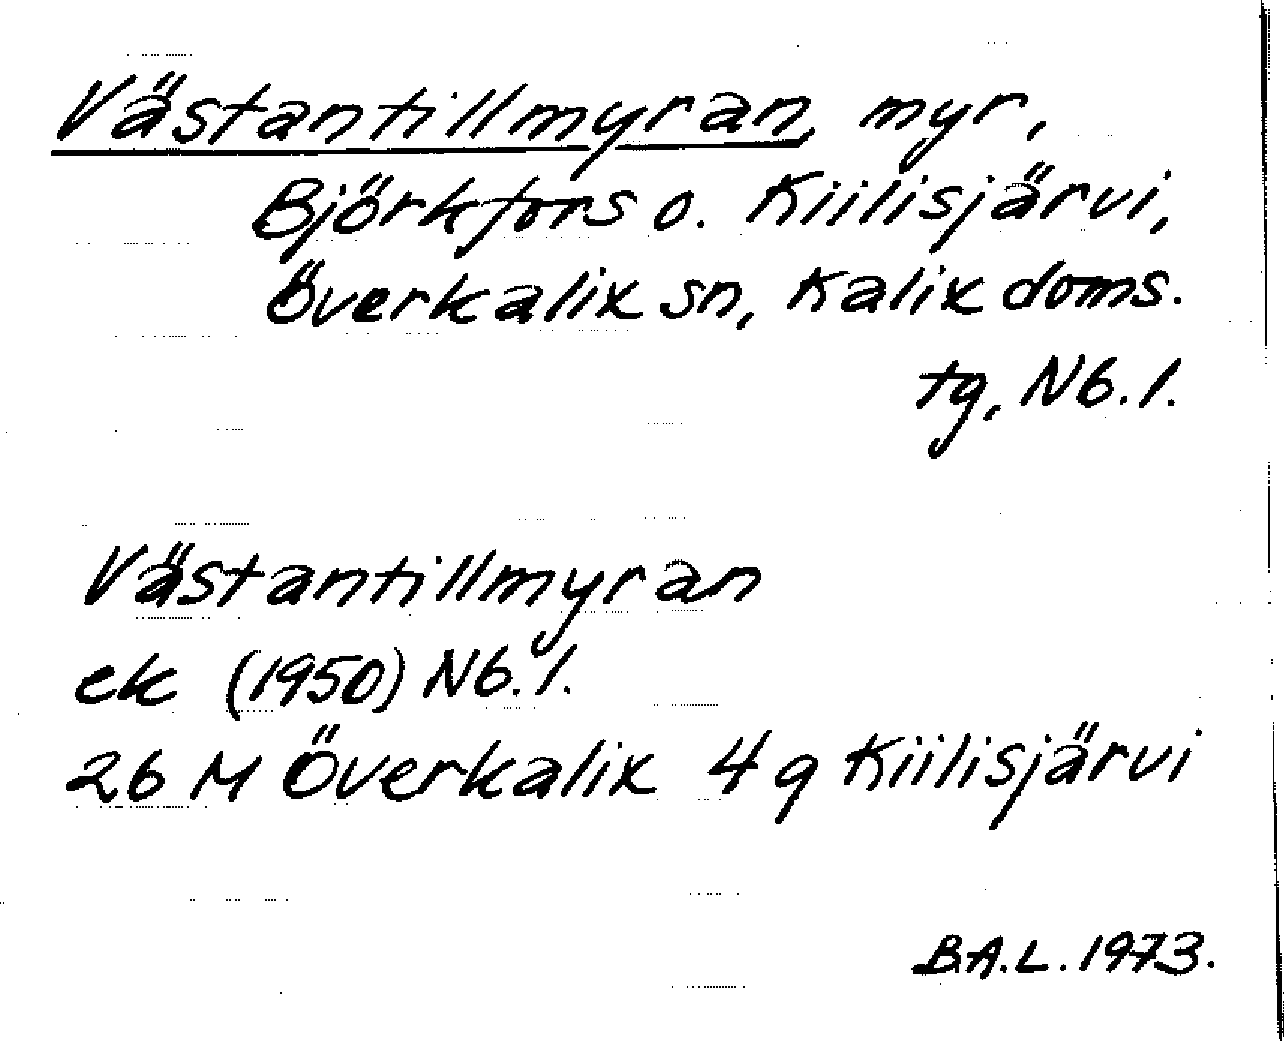 Västantillmyran, myr,
Björkfors o. Kiilisjärvi,
Överkalix sn, Kalix doms.
tg, Nb. l.
Västantillmyran
ek (1950) Nb. l.
26 M Överkalix 4 g Kiilisjärvi
B.A.L. 1973.